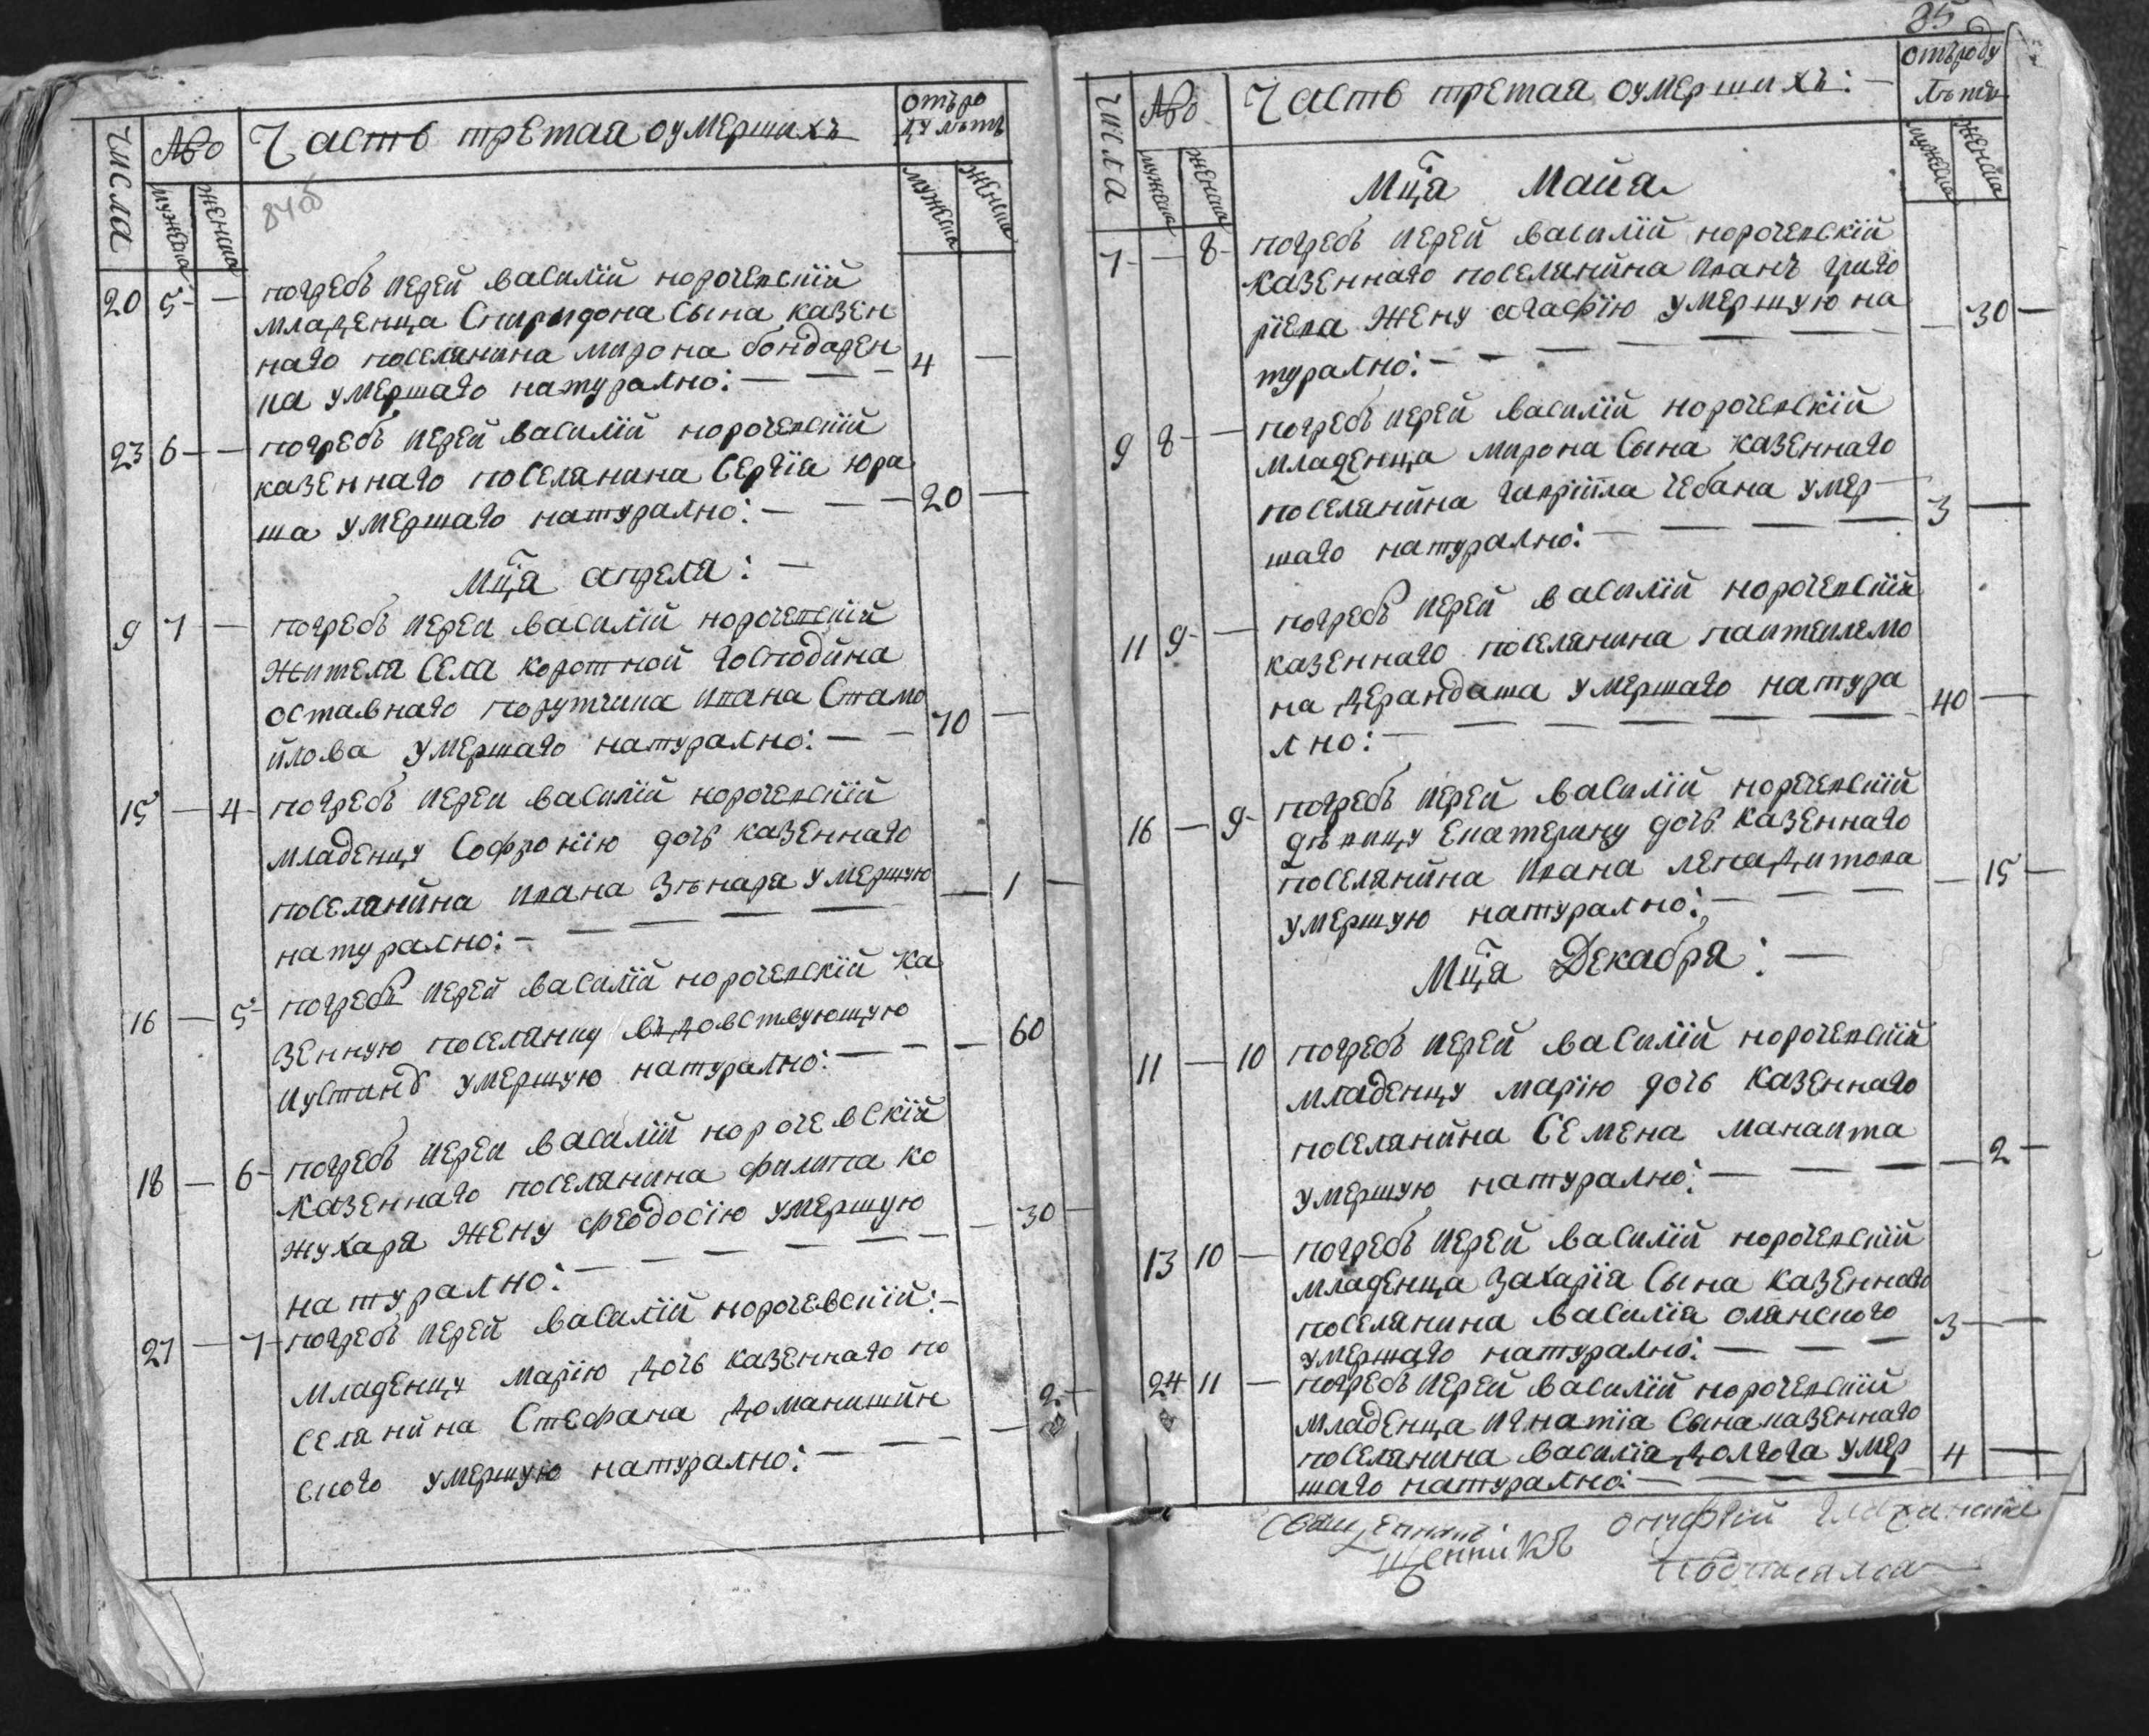 Числа
№
Часть третая оумершихъ
отъро
ду лѣтъ
мужеска
женска
мужеска
женска
84об
20 5 — погребъ иерей василïй корочевскïй
младенца Спиридона Сына казен
наго поселянина мирона бондарен
ка умершаго натурално: — — — 4 —
23 6 — погребъ иерей василïй корочевскïй
казеннаго поселянина Сергïя юра
ша умершаго натурално: — — — 20 —
Мц̃а апреля: —
9 7 — погребъ иереи василïй корочевскïй
жителя Села коротной господина
оставнаго порутчика ивана Стамо
йлова умершаго натурално: — — 70 —
15 — 4 погребъ иереи василïй корочевскïй
младенцу Софронïю дочь казеннаго
поселянина ивана Зѣнкаря умершую — 1 —
натурално: — — — —
16 — 5 погребъ иерей василïй корочевскïй ка
зенную поселянку вѣдовствующую
иустинѣ умершую натурално: — — — 60
18 — 6 погребъ иереи василïй корочевскïй
казеннаго поселянина филипа ко
жухаря жену феодосïю умершую — 30 —
натурално: — — — — —
27 — 7 погребъ иерей василïй корочевскïй: —
младенцу марïю дочь казеннаго по
селянина Стефана доманишин — 2 —
ского умершую натурално: — — —
85
Числа
№
Часть третая оумершихъ: —
отъроду
лѣтъ
мужеска
женска
мужеска
женска
Мц̃а Майя
7 — 8 погребъ иерей василïй корочевскïй
казеннаго поселянина иванъ григо
рïева жену агафïю умершую на — 30 —
турално: — — — — — —
9 8 — погребъ иерей василïй корочевскïй
младенца мирона Сына казеннаго
поселянина гаврïила чебана умер 3 —
шаго натурално: — — — —
11 9 — погребъ иерей василïй корочевскïй
казеннаго поселянина пантеилемо
на дерандаша умершаго натура 40 —
лно: — — — — — —
16 — 9 погребъ иерей василïй корочевскïй
дѣвицу Екатерину дочь казеннаго
поселянина ивана — 15 —
умершую натурално: — — —
Мц̃а Декабря: —
11 — 10 погребъ иерей василïй корочевскïй
младенцу марïю дочь казеннаго
поселянина Семена — 2 —
умершую натурално: — — —
13 10 — погребъ иерей василïй корочевскïй
младенца Захарïя Сына казеннаго
поселянина василïя олянского 3 —
умершаго натурално: — — —
24 11 — погребъ иерей василïй корочевскïй
младенца игнатïя Сына казеннаго
поселянина василïя долгога умер 4 —
шаго натурално: — — — —
онуфрïй
щенникъ
подписался